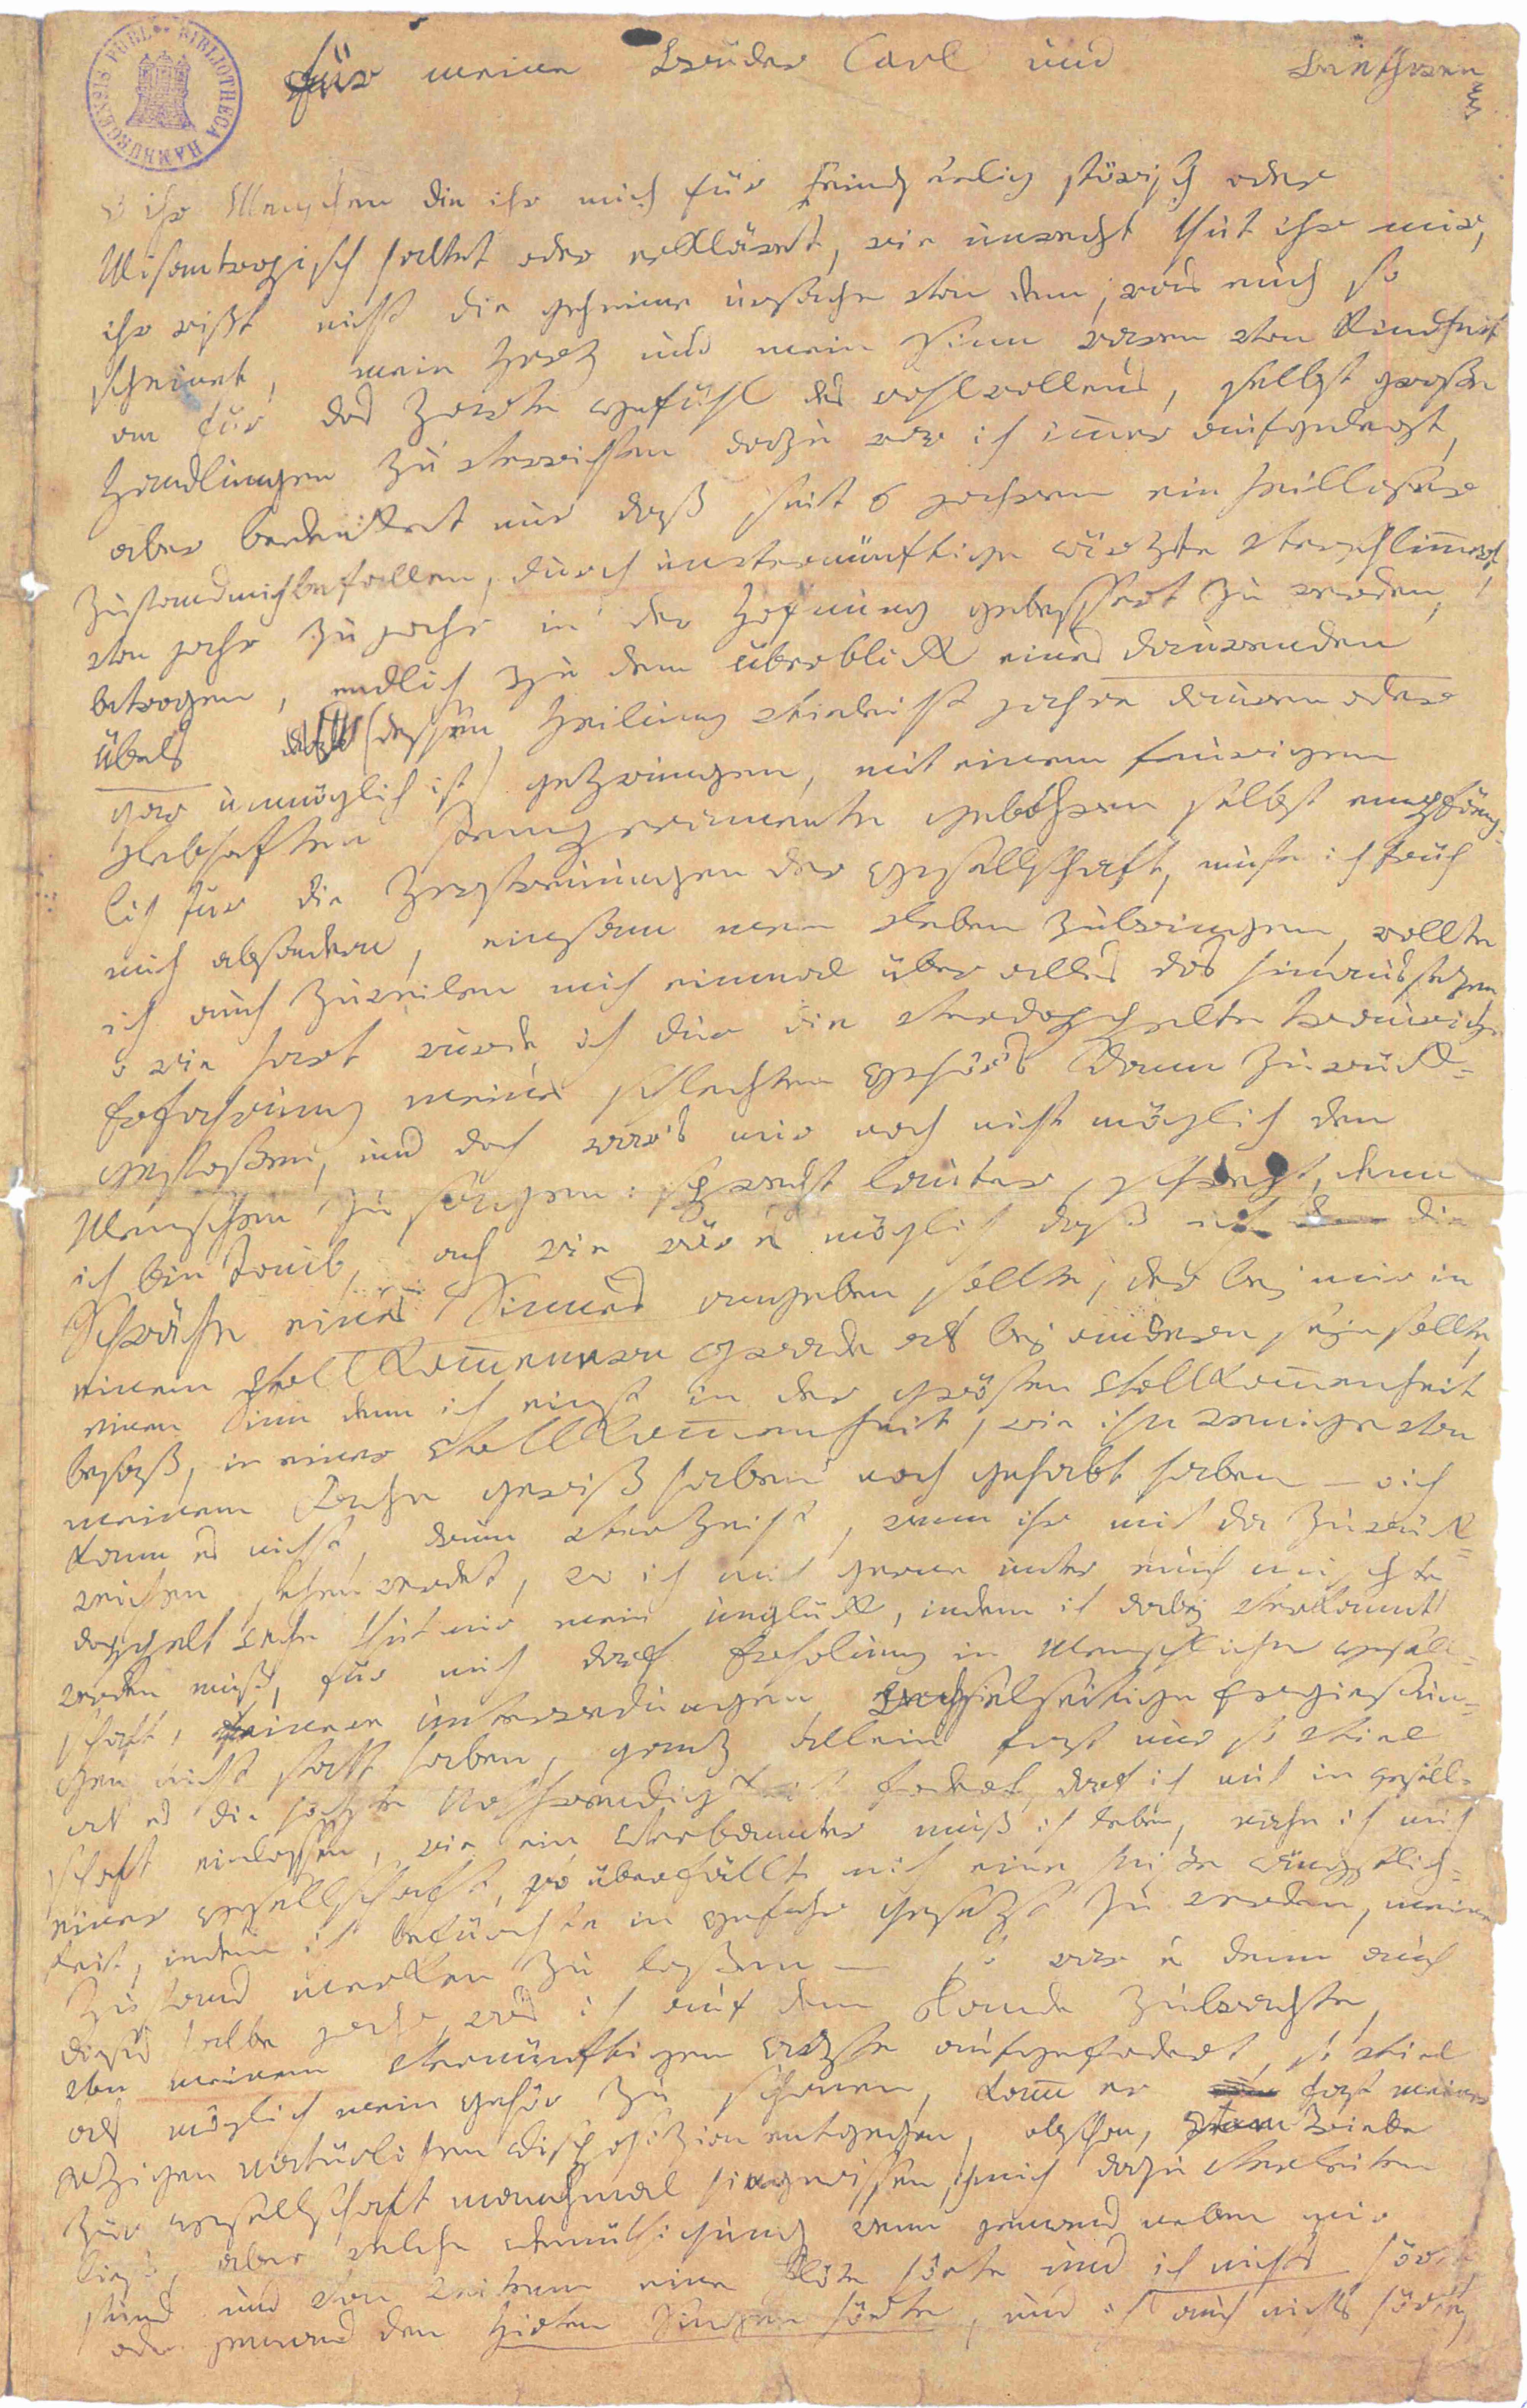 BIBLIOTHECA HAMBURGENSIS PUBL.
für meine Brüder Carl und Beethowen
o ihr Menschen die ihr mich für Feindseelig störisch oder
Misantropisch haltet oder erkläret, wie unrecht thut ihr mir,
ihr wißt nicht die geheime ursache von dem, was euch so
scheinet, mein Herz und mein Sinn waren von Kindheit
an für das Zarte gefühl des wohlwollens, selbst große
Handlungen zu verrichten dazu war ich imer aufgelegt,
aber bedenket nur daß seit 6 jahren ein heilloser
Zustand mich befallen, durch unvernünftige ärzte verschlimert,
von jahr zu jahr in der Hofnung gebessert zu werden,
betrogen, endlich zu dem überblick eines daurenden
Übels (dessen Heilung vieleicht jahre dauren oder
gar unmöglich ist) gezwungen, mit einem feurigen
Lebhaften Temperamente gebohren selbst empfäng-
lich für die Zerstreuungen der gesellschaft, muste ich früh
mich absondern, einsam mein Leben zubringen, wollte
ich auch zuweilen mich einmal über alles das hinaussezen,
o wie hart wurde ich dur die verdoppelte traurige
Erfahrung meines schlechten Gehör's dann zurück-
gestoßen, und doch war's mir noch nicht möglich den
Menschen zu sagen: sprecht lauter, schreyt, denn
ich bin Taub, ach wie wär es möglich daß ich die
Schwäche eines Sinnes angeben sollte, der bej mir in
einem Vollkomenern Grade als bej andern sejn sollte,
einen Sinn denn ich einst in der grösten Vollkomenheit
besaß, in einer Vollkomenheit, wie ihn wenige von
meinem Fache gewiß haben noch gehabt haben – o ich
kann es nicht, drum verzeiht, wenn ihr mich da zurück-
weichen sehen werdet, wo ich mich gerne unter euch mischte
doppelt wehe thut mir mein unglück, indem ich dabej verkannt
werden muß, für mich darf Erholung in Menschlicher gesell-
schaft, feinere unterredungen, wechselseitige Ergießun-
gen nicht statt haben, ganz allein fast nur so viel
als es die höchste Nothwendigkeit fodert, darf ich mich in gesell-
schaft einlassen, wie ein Verbannter muß ich leben, nahe ich mich
einer Gesellschaft, so überfällt mich eine heiße ängstlich-
keit, indem ich befürchte in Gefahr gesezt zu werden, meinen
Zustand merken zu laßen – so war es denn auch
dieses halbe jahr, was ich auf dem Lande zubrachte,
von meinem Vernünftigen Arzte aufgefodert, so viel
als möglich mein Gehör zu schonen, kamm er fast meiner
jezigen natürlichen Disposizion entgegen, obschon, vom Triebe
zur Gesellschaft manchmal hingerissen, ich mich dazu verleiten
ließ, aber welche Demüthigung wenn jemand neben mir
stund und von weitem eine Flöte hörte und ich nichts hörte,
oder jemand den Hirten Singen hörte, und ich auch nichts hörte,